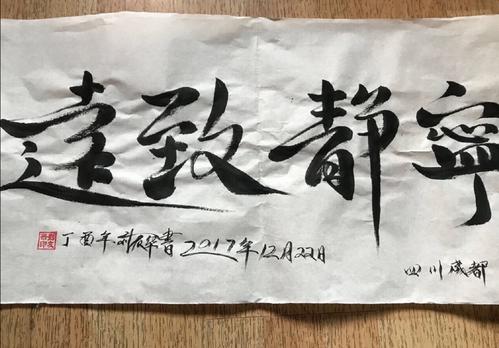 寧静致遠
丁酉年 書 2017年12月22日
四川成都